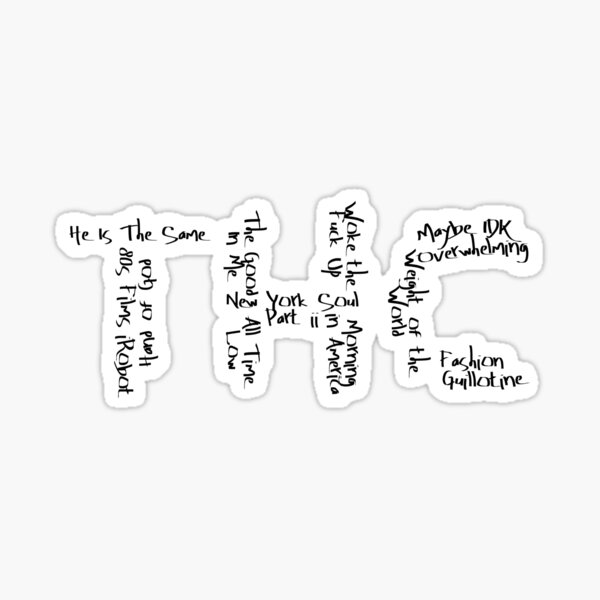 He Is The Same
Hand of God
80s Films iRobot
The Good
in Me
New York Soul
Part ii
All Time
Low
Woke the
Fuck Up
Morning
in America
Maybe IDK
Overwhelming
Weight of the
World
Fashion
Guillotine